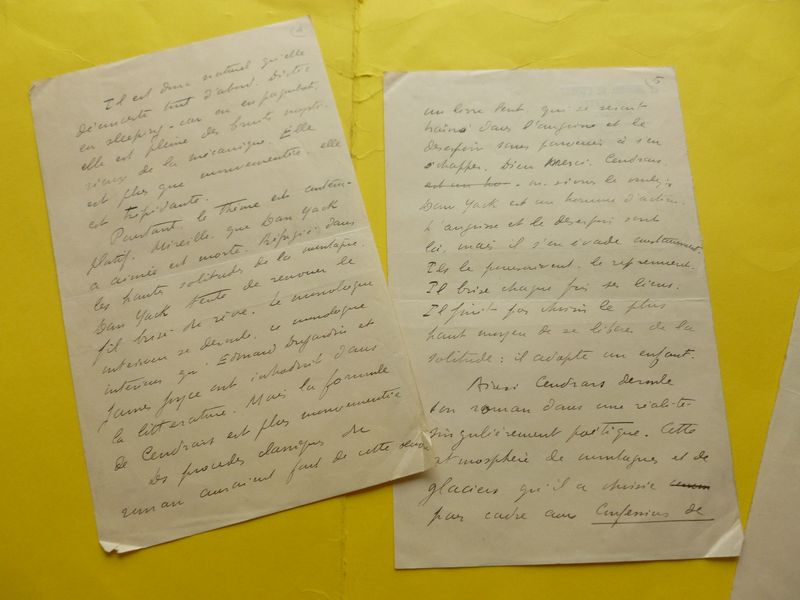 4
Il est donc naturel qu'elle
déconcerte tout d'abord. Dictée
en sleeping-car ou en paquebot,
elle est pleine des bruits mysté-
rieux de la mécanique. Elle
est plus que mouvementée, elle
est trépidante.
Pourtant, le thème est contem-
platif. Mireille, que Dan Yack
a aimée est morte. Réfugié dans
les hautes solitudes de la montagne,
Dan Yack tente de renouer le
fil brisé de rêve. Le monologue
intérieur se déroule, ce monologue
intérieur qu'Edouard Dujardin et
James Joyce ont introduit dans
la littérature. Mais la formule
de Cendrars est plus mouvementée
Les procédés classiques du
roman auraient fait de cette
5
un livre lent, qui se serait
traîné dans l'angoisse et le
désespoir sans parvenir à s'en
échapper. Dieu merci, Cendrars,
est un hom
Dan Yack est un homme d'action.
L'angoisse et le désespoir sont
là, mais il s'en évade constamment.
Ils le poursuivent, le reprennent.
Il brise chaque fois ses liens.
Il finit par choisir le plus
haut moyen de se libérer de la
solitude : il adopte un enfant.
Ainsi Cendrars déroule
son roman dans une réalité
singulièrement poétique. Cette
atmosphère de montagnes et de
glaciers qu'il a choisie
pour cadre aux Confessions de